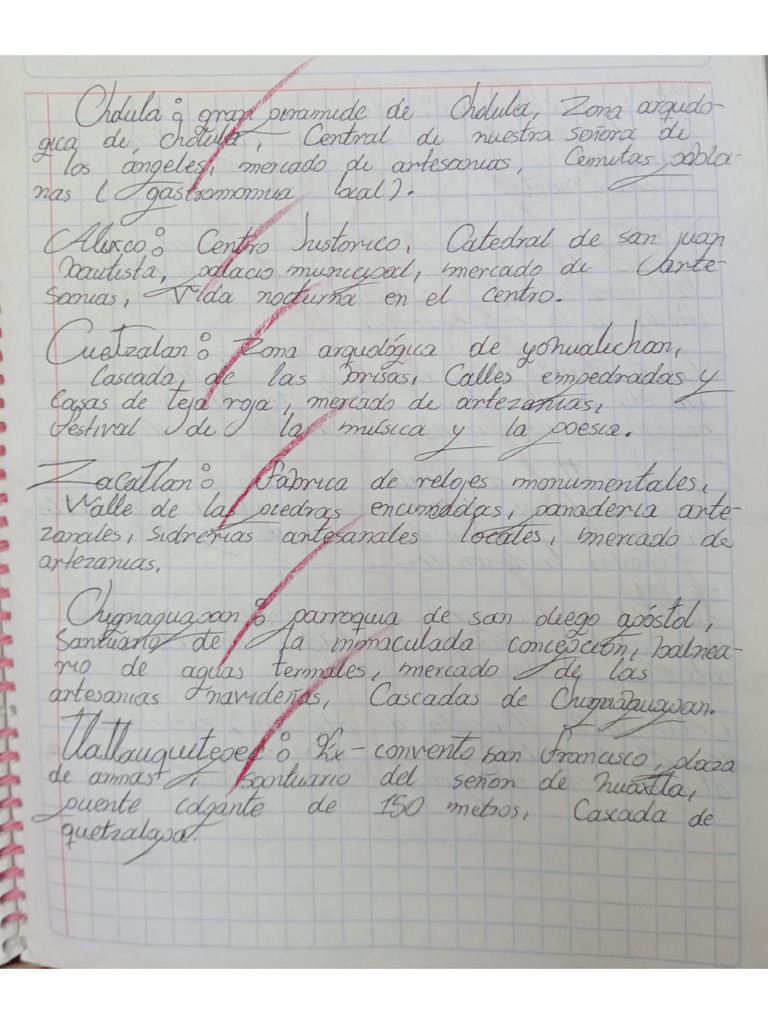 Cholula: gran piramide de Cholula, Zona arqueolo-
gica de cholula, Central de nuestra señora de
los ángeles, mercado de artesanias, Cemitas pobla-
nas ( gastromomia local).
Atlixco: Centro historico, Catedral de san juan
bautista, palacio municipal, mercado de arte-
sanias, Vida nocturna en el centro.
Cuetzalan: Zona arqueológica de yohualichan,
Cascada de las brisas, Calles empedradas y
Casas de teja roja, mercado de artezanias,
festival de la musica y la poesia.
Zacatlan: fábrica de relojes monumentales,
Valle de las piedras encimadas, panaderia arte-
zanales, sidrerias artesanales locales, mercado de
artezanias.
Chignaguapan: parroquia de san diego apóstol,
Santuario de la inmaculada concepción, balnea-
rio de aguas termales, mercado de las
artesanias navideñas, Cascadas de
Tlatlauquitepec: Ex-convento san francisco, plaza
de armas, santuario del señor de huaxtla,
puente colgante de 150 metros, Cascada de
quetzalapa.